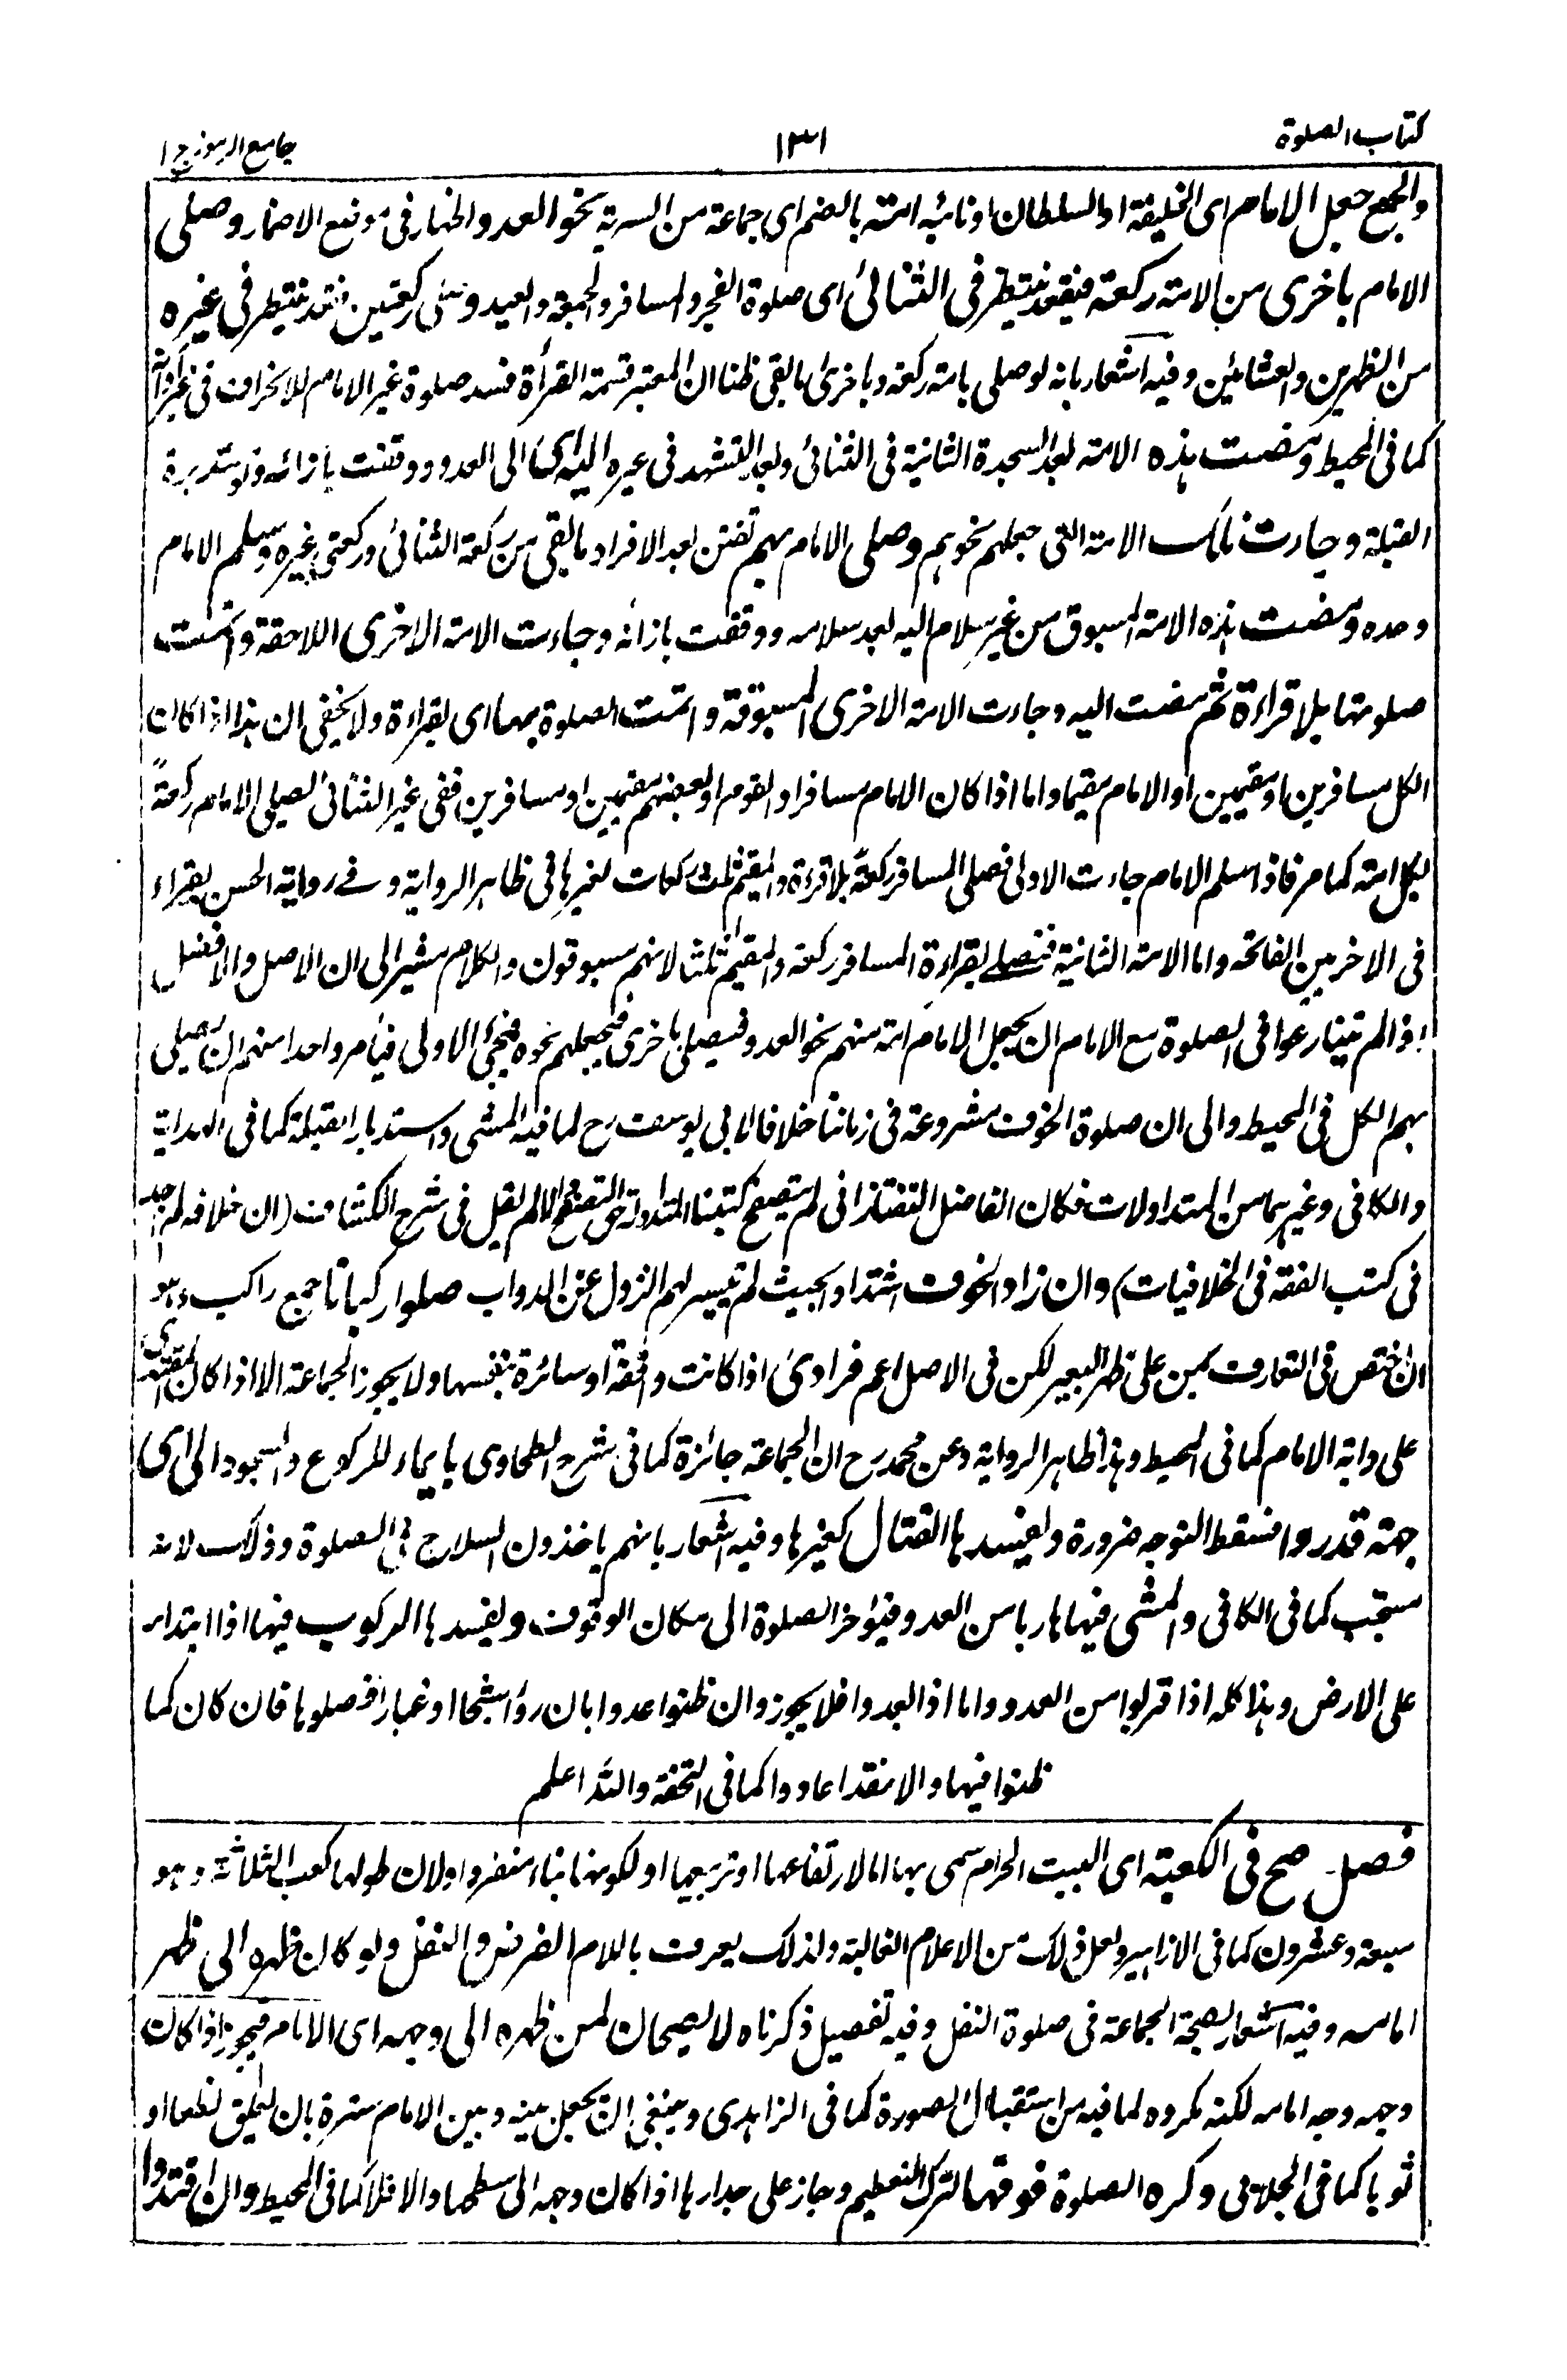 كتاب الصلوة
١٣١
جامع الرموز ج ١
والجمع جعل الامام اى الخليفة او السلطان او نائبه امته بالضم اى جماعة من السرية نحو العدو الخار فى موضع الاضمار وصلى
الامام باخرى من الامته ركعة فيقعد ينتظر فى الثنائى اى صلوة الفجر والمسافر والجمعة والعيد و ركعتين فقد ينتظر فى غيره
من الظهرين والعشائين وفيه اشعار بانه لو صلى بامته ركعة وباخرى ما بقى ظنا ان المعتبر قسمة القرأة فسد صلوة غير الامام للانحراف فى غير
كما فى المحيط ومضت هذه الامته بعد السجدة الثانية فى الثنائى وبعد التشهد فى غيره اليه اى الى العدو ووقفت بازائه ولو مستدبرة
القبلة وجاءت تلك الامته التى جعلهم نحوهم وصلى الامام بهم بعد الافراد ما بقى من ركعة الثنائى وركعتى غيره وسلم الامام
وحده ومضت هذه الامته المسبوق من غير سلام اليه بعد سلامه ووقفت بازائه وجاءت الامته الاخرى اللاحقة واتمت
صلوتها بلا قراءة ثم مضت اليه وجاءت الامته الاخرى المسبوقة واتمت الصلوة بها اى بقراءة ولا يخفى ان هذا اذا كان
الكل مسافرين او مقيمين او الامام مقيما واما اذا كان الامام مسافرا والقوم او بعضهم مقيمين او مسافرين ففى غير الثنائى يصلى الامام ركعةً
لكل امته كما مر فاذا سلم الامام جاءت الاولى فصلى المسافر ركعةً بلا قراءة والمقيم ثلث ركعات لغيرها فى ظاهر الرواية و فے رواية الحسن يقراء
فى الاخريين الفاتحه واما الامته الثانية فتصلے بقراءة المسافر ركعة والمقيم ثلثا لانهم مسبوقون والكلام مشير الى ان الاصل والافضل
اذا لم يتنازعوا فى الصلوة مع الامام ان يجعل الامام امته منهم نحو العدو فيصلى باخرى فيجعلهم نحوه فيجئ الاولى فيأمر واحدا منهم ان يصلى
بهم الكل فى المحيط والى ان صلوة الخوف مشروعة فى زماننا خلافا لابى يوسف رح لما فيه المشى واستدبار القبلة كما فى الهداية
والكافى وغيرهما من المتداولات فكان الفاضل التفتازانى لم يتصفح كتبنا المتداولة حق التصفح والا لم يقل فى شرح الكشاف (ان خلافه لم اجد
فى كتب الفقه فى الخلافيات) وان زاد الخوف اشتدادا بحيث لم يتيسر لهم النزول عن الدواب صلوا ركبانا جمع راكب وهو
ان اختص فى التعارف بمن على ظهر البعير لكن فى الاصل اعم فرادىٰ اذا كانت واقفة او سائرة بنفسها ولا يجوز الجماعة الا اذا كان المقتدى
على دابة الامام كما فى المحيط وهذا ظاهر الرواية وعن محمد رح ان الجماعة جائزة كما فى شرح الطحاوى بايماء للركوع والسجود الى اى
جهته قدروا فسقط التوجه ضرورة ويفسدها القتال كغيرها وفيه اشعار بانهم ياخذون السلاح فى الصلوة وذلك لانه
مستحب كما فى الكافى والمشى فيها هاربا من العدو فيؤخر الصلوة الى مكان الوقوف ويفسدها الركوب فيها اذا ابتداء
على الارض وهذا كله اذا قربوا من العدو واما اذا البعدوا فلا يجوز وان ظنوا عدوا بان رؤا شبحا او غبارا فصلوها فان كان كما
ظنوا فيها والا فقد اعادوا كما فى التحفة والله اعلم
فصل صح فى الكعبة اى البيت الحرام سمى بها اما لارتفاعها او تربيعها او لكونها بناء منفردا ولان طولها كعب الثلاثة وهو
سبعة وعشرون كما فى الازاهير ولعل ذلك من الاعلام الغالبة ولذلك يعرف باللام الفرض والنفل ولو كان ظهره الى ظهر
امامه وفيه اشعار بصحة الجماعة فى صلوة النفل وفيه تفصيل ذكرناه لا يصحان لمن ظهره الى وجهه اى الامام فيجوز اذا كان
وجهه وجه امامه لكنه مكروه لما فيه من استقبال الصورة كما فى الزاهدى وينبغى ان يجعل بينه وبين الامام سترة بان يعلق نطعا او
ثوبا كما فى الجلابى وكره الصلوة فوقها لترك التعظيم وجاز على جدارها اذا كان وجهه الى سطحها والا فلا كما فى المحيط وان اقتدوا